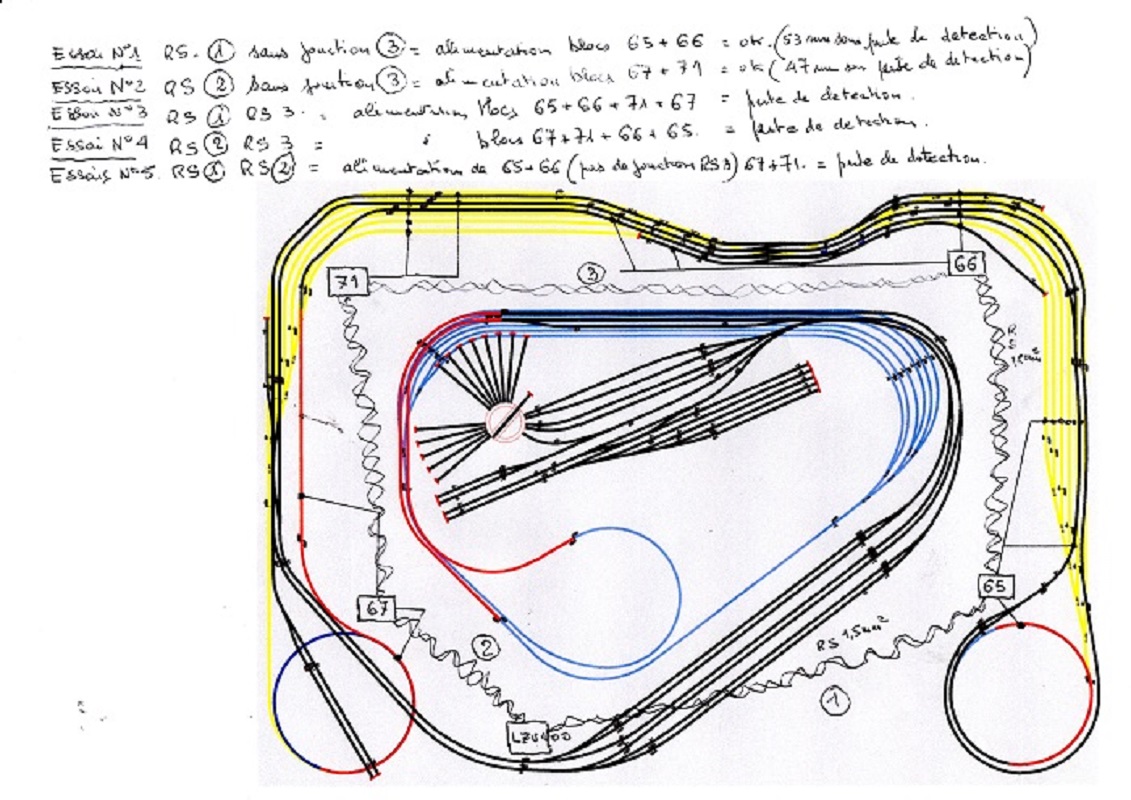 Essai N°1 RS. ① sans jonction ③ = alimentation blocs 65+66 = ok. (53 mm sans perte de detection)
Essai N°2 RS ② sans jonction ③ = alimentation blocs 67+71 = ok (47 mm sans perte de detection)
Essai N°3 RS ① RS 3. = alimentation blocs 65+66+71+67 = perte de detection.
Essai N°4 RS ② RS 3 = blocs 67+71+66+65. = perte de detection.
Essais N°5. RS ① RS ② = alimentation de 65+66 (pas de jonction RS3) 67+71. = perte de detection.
71
③
66
RS 1,5mm²
67
65
②
RS 1,5mm²
①